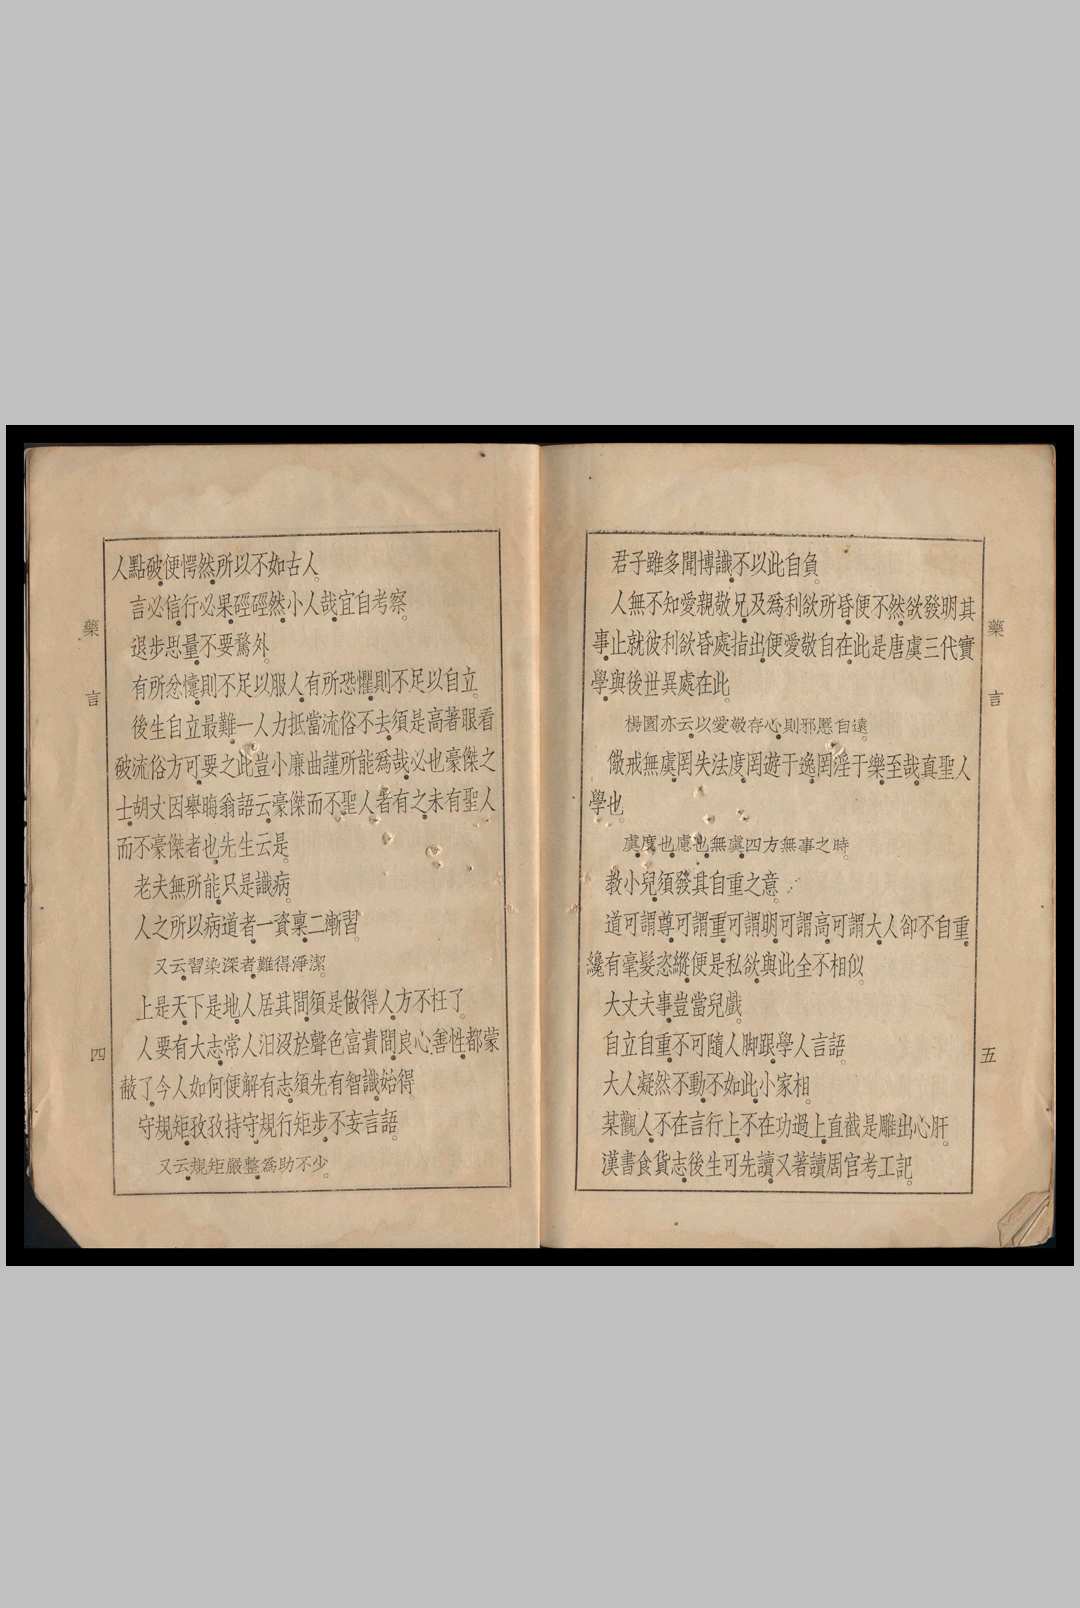 藥言
四
人點破便愕然所以不如古人。
言必信行必果硜硜然小人哉宜自考察。
退步思量不要騖外。
有所忿懥則不足以服人有所恐懼則不足以自立。
後生自立最難一人力抵當流俗不去須是高著眼看
破流俗方可要之此豈小廉曲謹所能爲哉必也豪傑之
士胡丈因舉晦翁語云豪傑而不聖人者有之未有聖人
而不豪傑者也先生云是。
老夫無所能只是識病。
人之所以病道者一資稟二漸習。
又云習染深者難得淨潔。
上是天下是地人居其間須是做得人方不枉了。
人要有大志常人汨沒於聲色富貴間良心善性都蒙
蔽了今人如何便解有志須先有智識始得
守規矩孜孜持守規行矩步不妄言語。
又云規矩嚴整爲助不少。
藥言
五
君子雖多聞博識不以此自負。
人無不知愛親敬兄及爲利欲所昏便不然欲發明其
事止就彼利欲昏處指出便愛敬自在此是唐虞三代實
學與後世異處在此。
楊園亦云以愛敬存心則邪慝自遠。
儆戒無虞罔失法度罔遊于逸罔淫于樂至哉真聖人
學也。
虞度也慮也無虞四方無事之時。
教小兒須發其自重之意。
道可謂尊可謂重可謂明可謂高可謂大人卻不自重
纔有毫髮恣縱便是私欲與此全不相似。
大丈夫事豈當兒戲。
自立自重不可隨人脚跟學人言語。
大人凝然不動不如此小家相。
某觀人不在言行上不在功過上直截是雕出心肝。
漢書食貨志後生可先讀又著讀周官考工記。